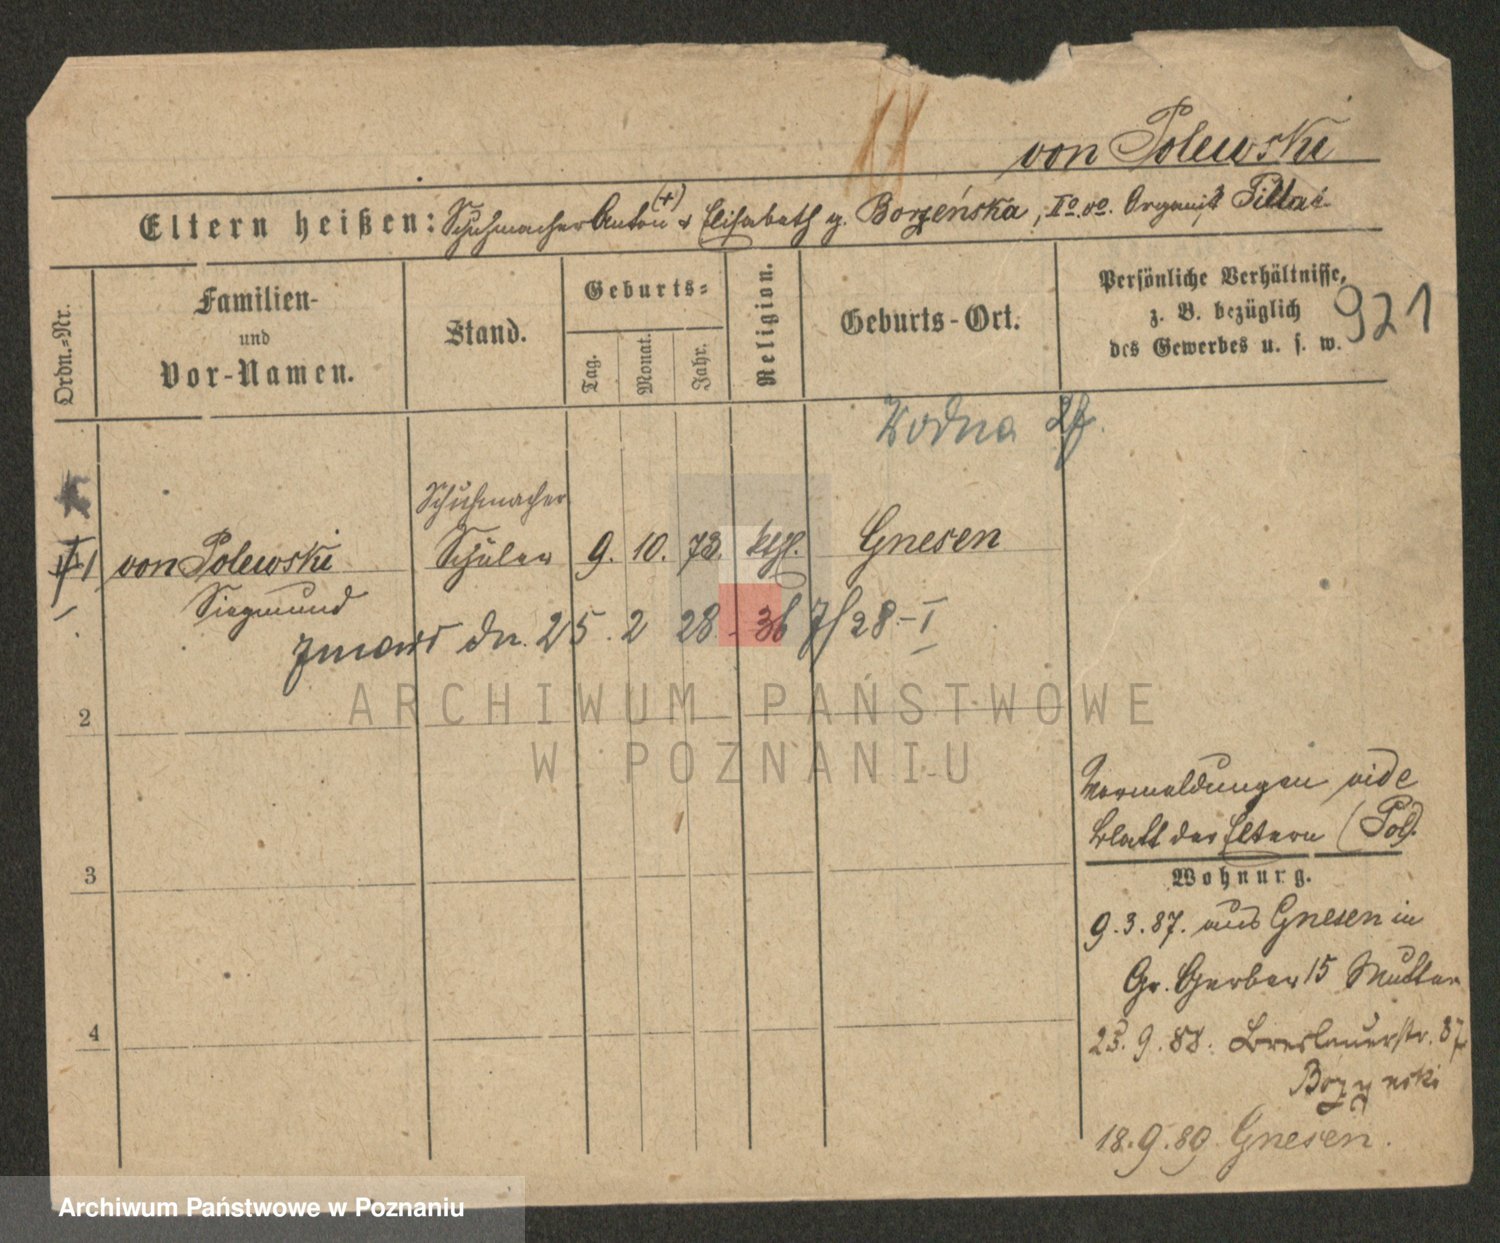 von Polewski
Eltern heißen: Schuhmacher Anton (+) & Elisabeth g. Borzeńska, Io vo. Organist
921
Ordn.-Nr.
Familien-
und
Vor-Namen.
Stand.
Geburts-
Tag.
Monat.
Jahr.
Religion.
Geburts-Ort.
Persönliche Verhältnisse,
z. B. bezüglich
des Gewerbes u. s. w.
Wodna
Schuhmacher
1 von Polewski Schüler 9. 10. 73. ktl. Gnesen
Siegmund
zmarł dn. 25. 2 28 - 36 7/28 - I
2
3
4
Vormeldungen vide
Blatt der Eltern (Pol).
Wohnung.
9.3.87. aus Gnesen in
Gr. Gerber 15 Mutter
23.9.88. Breslauerstr. 37
18.9.89 Gnesen.
ARCHIWUM PAŃSTWOWE
W POZNANIU
Archiwum Państwowe w Poznaniu